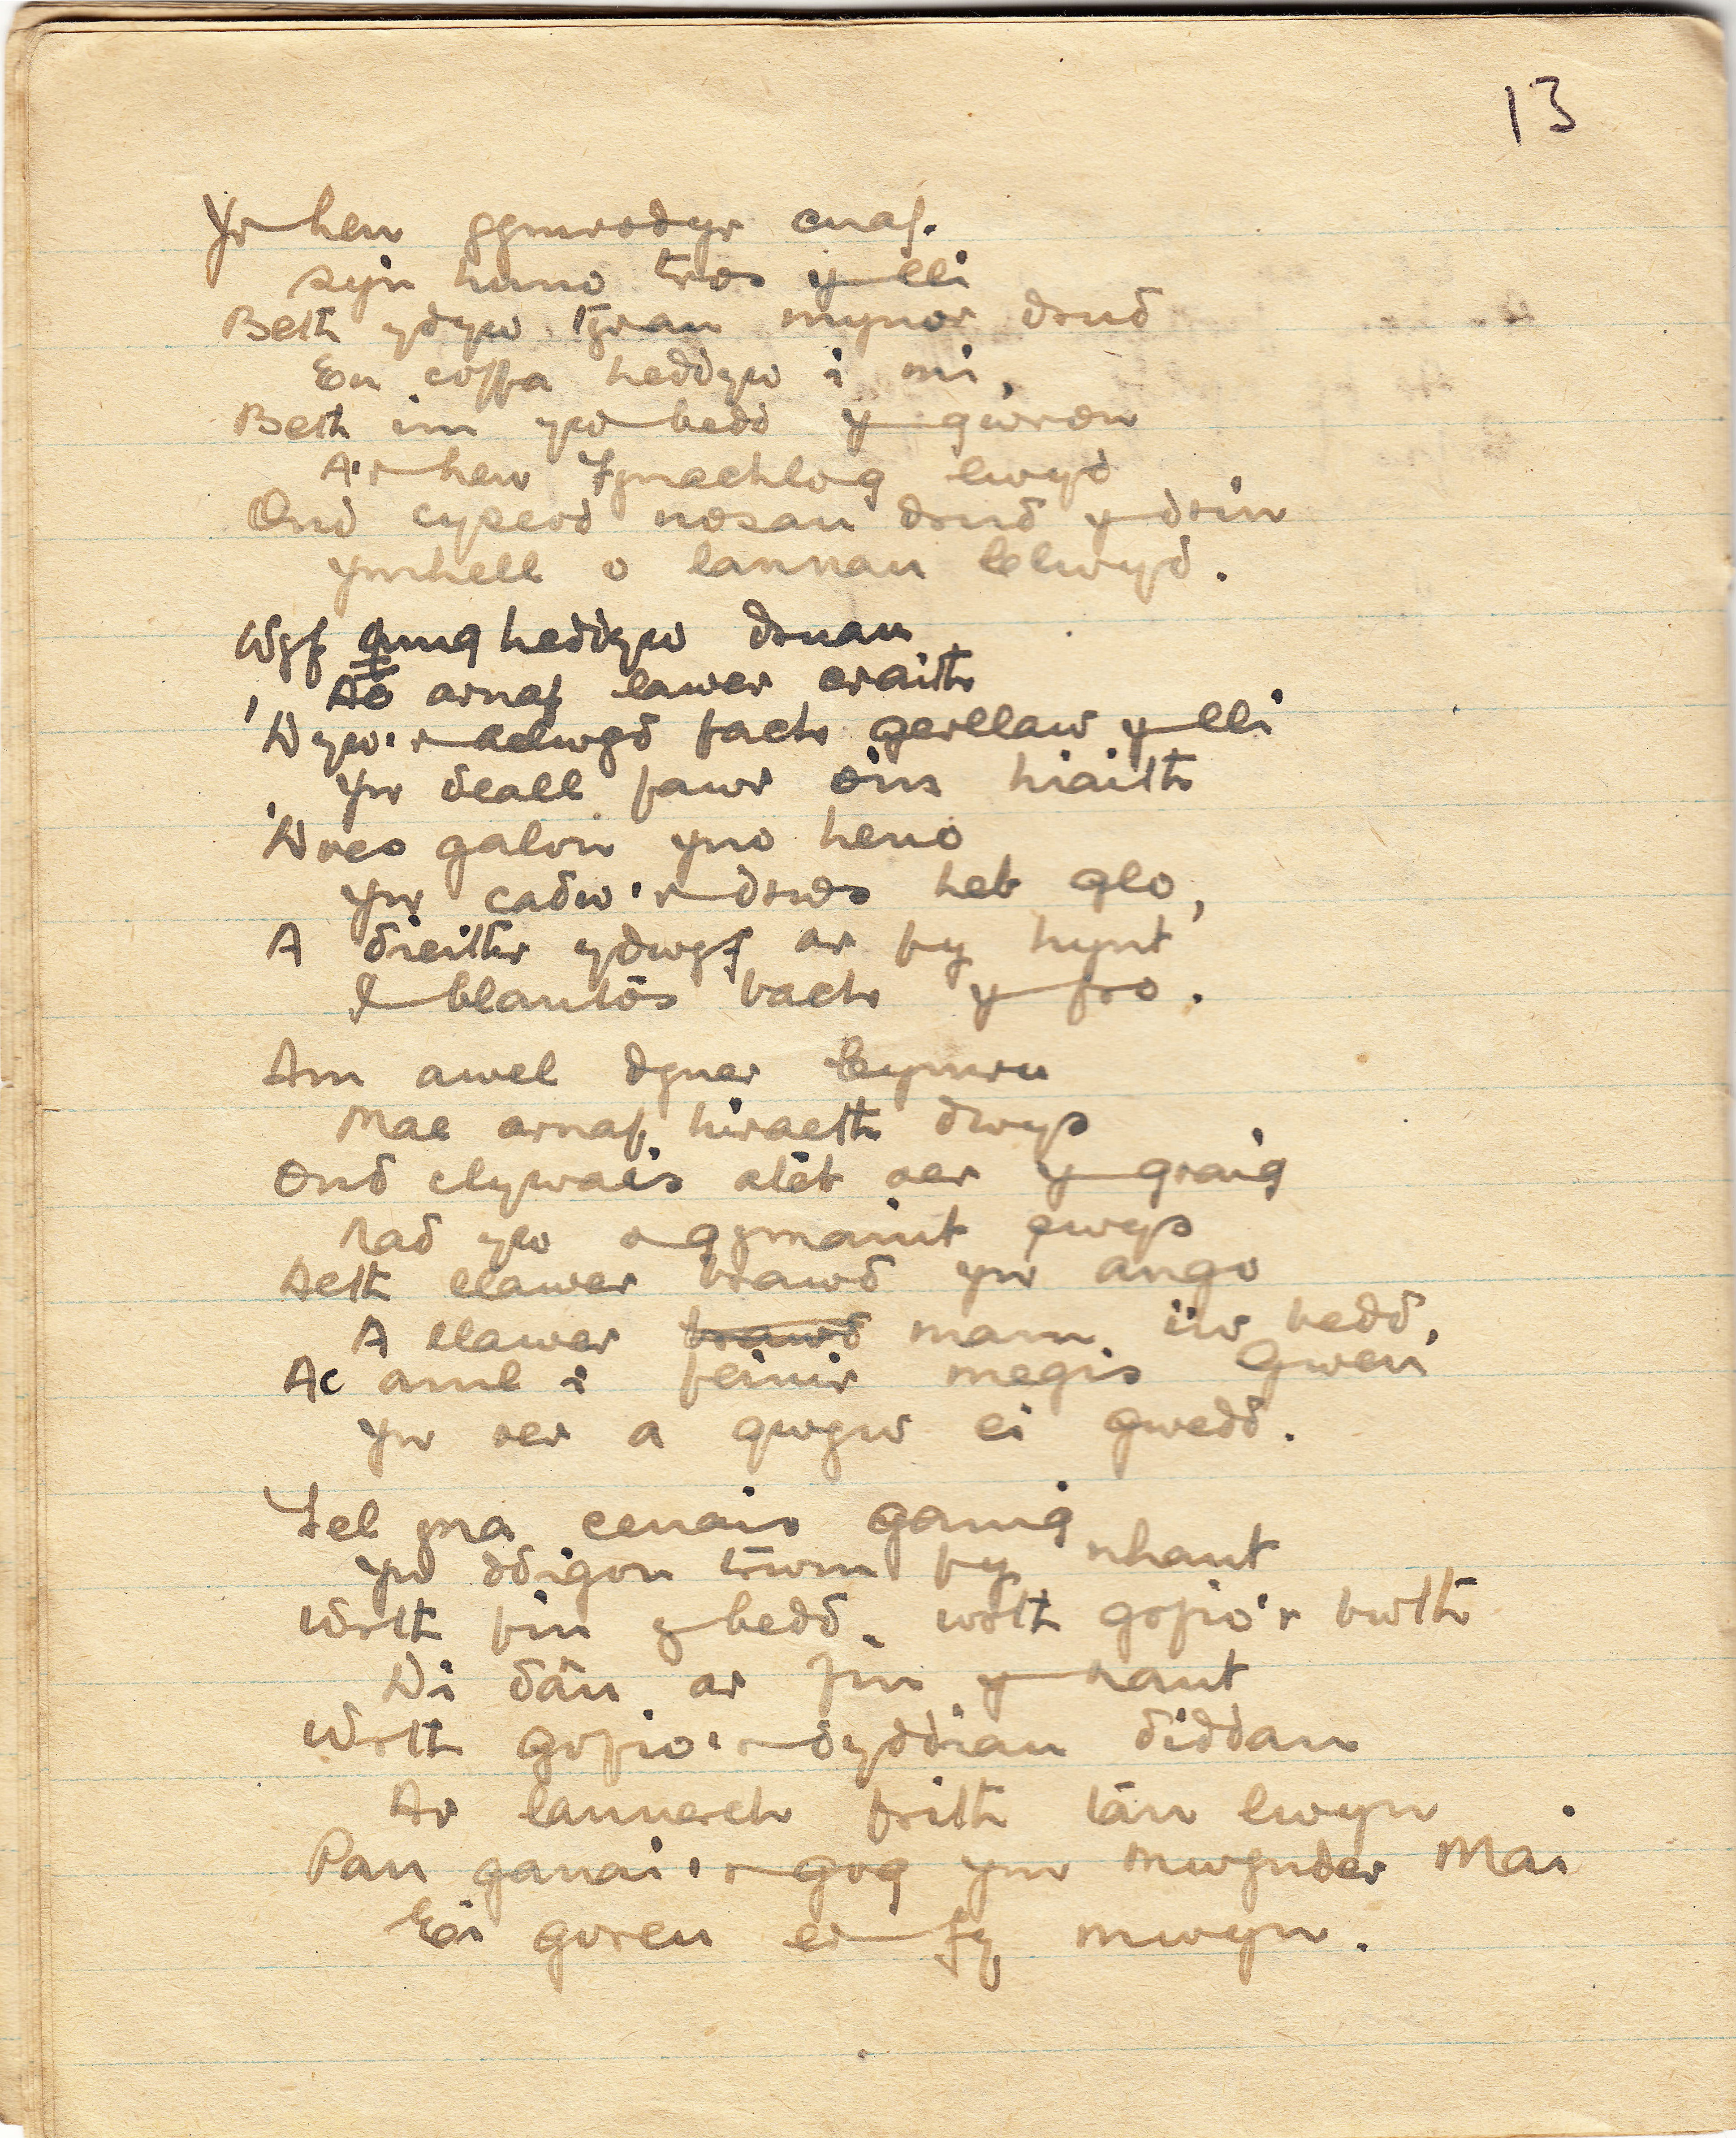 13
Yr hen gymrodyr cnaf.
sy'n huno tros y lli
Beth ydyw tyrau mynor drud
Eu coffa heddyw i mi,
Beth im yw bedd y gwron
A'r hen Fynachlog lwyd
Ond cysegrd nosau drud y drin
ymhell o lannau Clwyd.
Wyf unig heddyw druan
Ac arnaf lawer craith
'Dyw'r aelwyd fach gerllaw y lli
Yn deall fawr o'ns hiaith
'Does galon yno heno
Yn cadw'r drws heb glo,
A dieithr ydwyf ar fy hynt
I blantos bach y fro.
Am awel dyner Cymru
Mae arnaf hiraeth dwys
Ond clywais ateb oer y graig
Nad yw o gymaint pwys
Aeth llawer brawd yn ango
A llawer brawd mam i'w bedd,
Ac aml i feinir megis Gwen
Yn oer a gwyw ei gwedd.
Fel yna cenais ganig
Yn ddigon trwm fy nhant
Wrth fin y bedd, wrth gofio'r bwth
Di dân ar fin y nant
Wrth gofio'r dyddiau diddan
Ar lannerch frith tan lwyn
Pan ganai'r gog yn mwynder Mai
Ei goreu er fy mwyn.